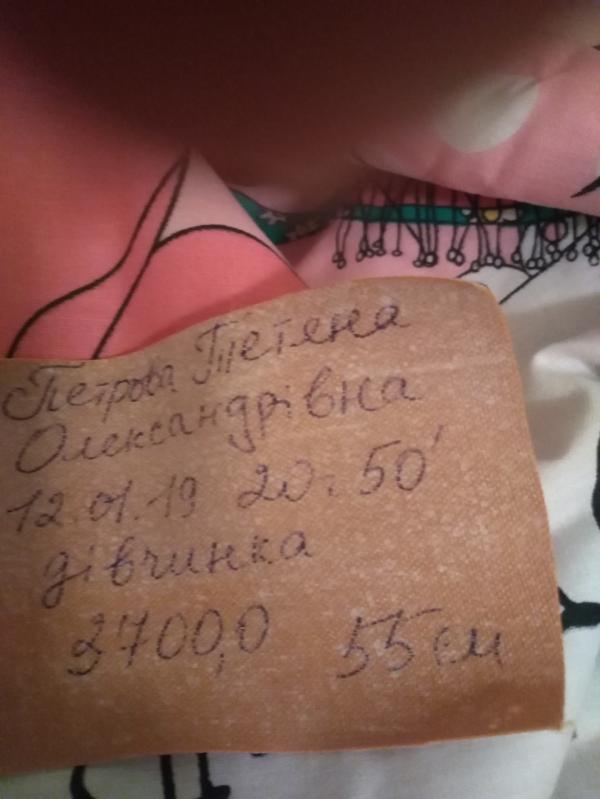 Петрова Тетяна
Олександрівна
12.01.19 20.50'
дівчинка
3700,0 55 см